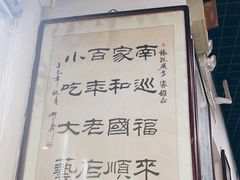 南巡福來
家和國順
百年老店
小吃大藝